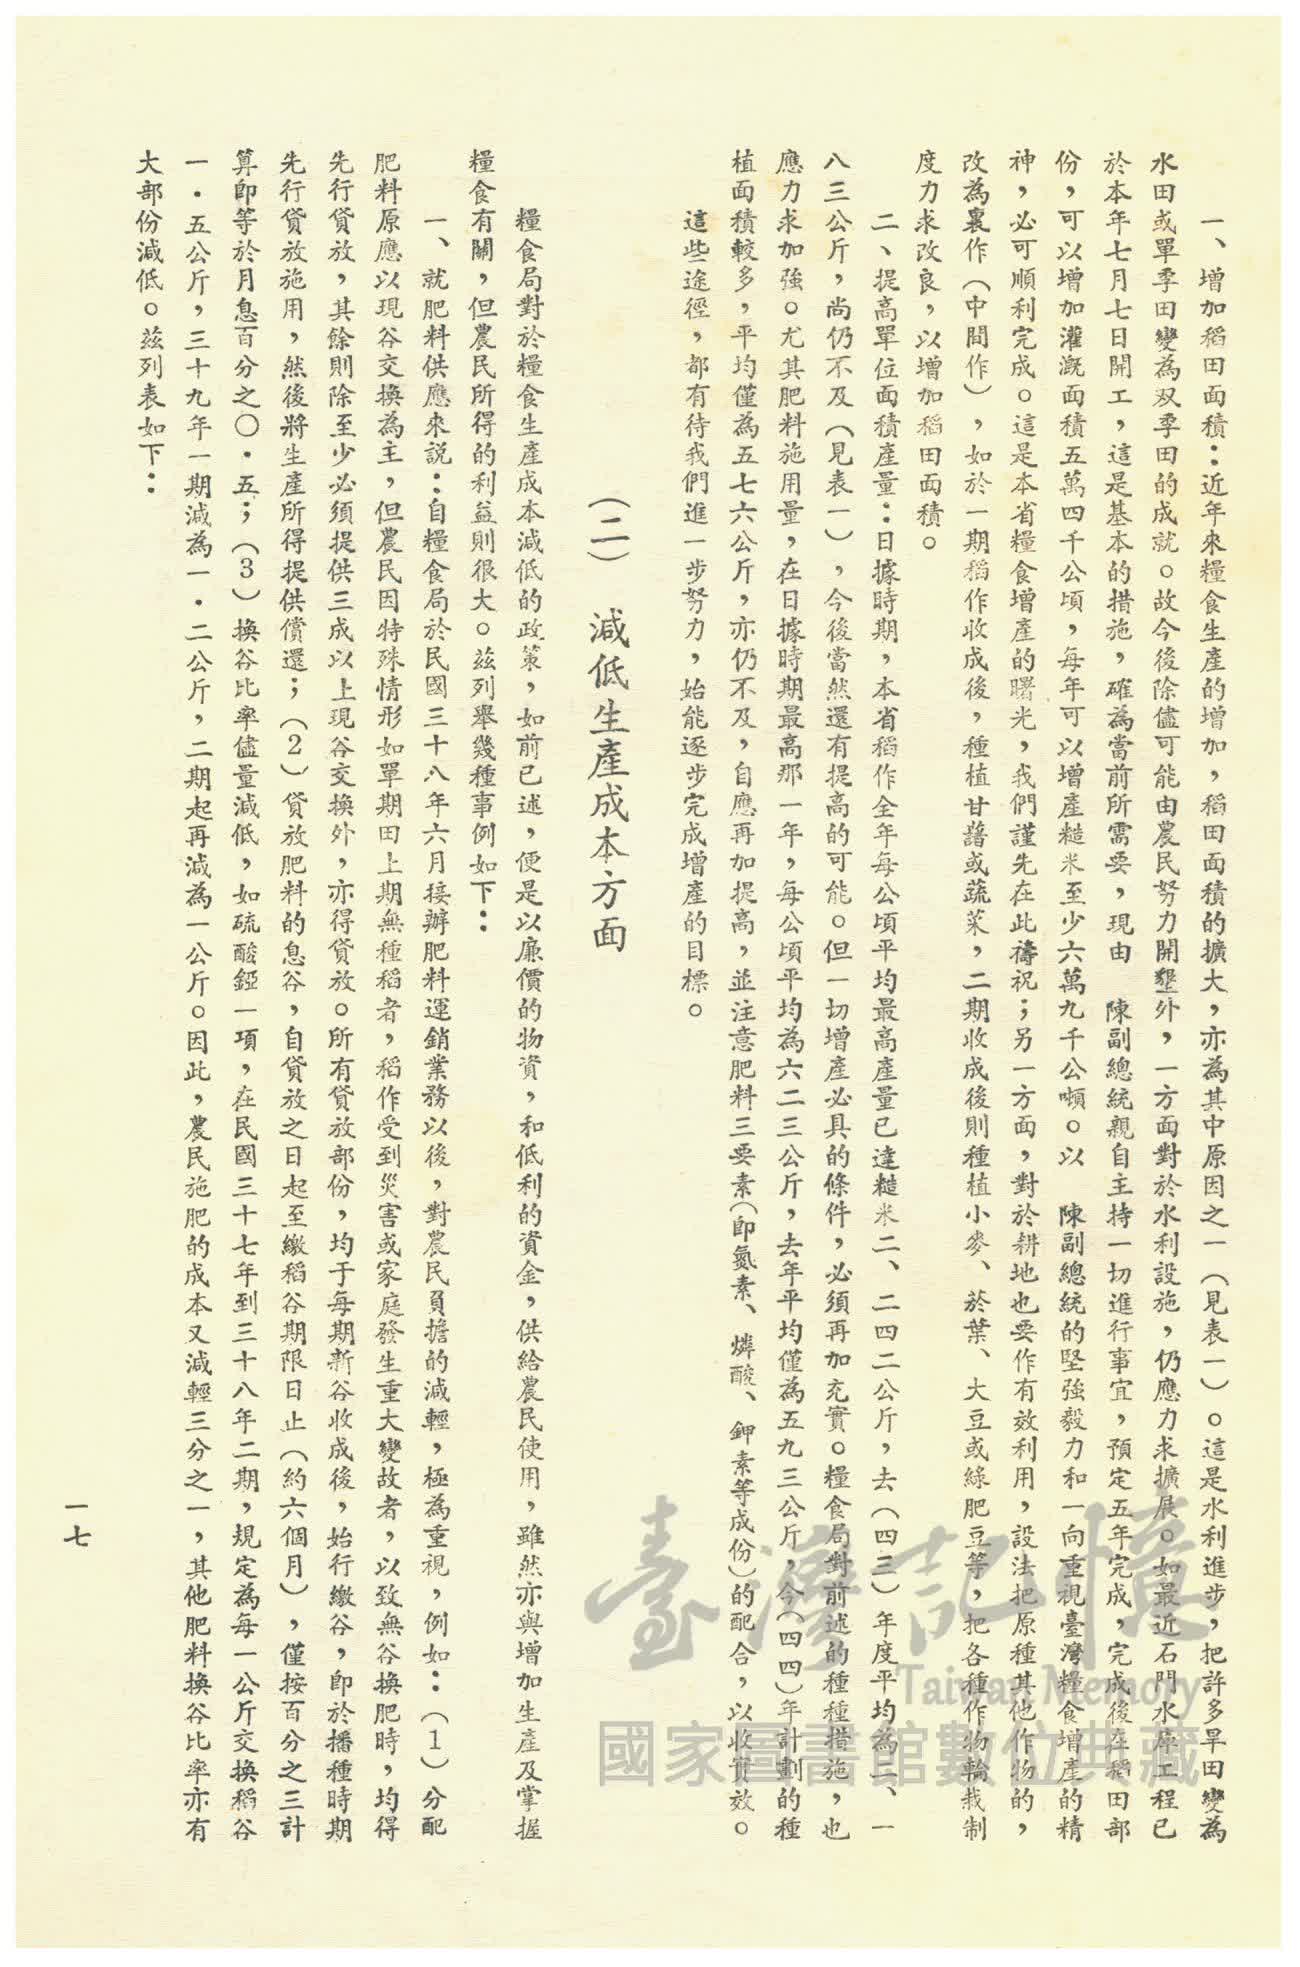 一、增加稻田面積：近年來糧食生產的增加，稻田面積的擴大，亦為其中原因之一（見表一）。這是水利進步，把許多旱田變為
水田或單季田變為双季田的成就。故今後除儘可能由農民努力開墾外，一方面對於水利設施，仍應力求擴展。如最近石門水庫工程已
於本年七月七日開工，這是基本的措施，確為當前所需要，現由　陳副總統親自主持一切進行事宜，預定五年完成，完成後在稻田部
份，可以增加灌溉面積五萬四千公頃，每年可以增產糙米至少六萬九千公噸。以　陳副總統的堅強毅力和一向重視臺灣糧食增產的精
神，必可順利完成。這是本省糧食增產的曙光，我們謹先在此禱祝；另一方面，對於耕地也要作有效利用，設法把原種其他作物的，
改為裏作（中間作），如於一期稻作收成後，種植甘藷或蔬菜，二期收成後則種植小麥、菸葉、大豆或綠肥豆等，把各種作物輪栽制
度力求改良，以增加稻田面積。
二、提高單位面積產量：日據時期，本省稻作全年每公頃平均最高產量已達糙米二、二四二公斤，去（四三）年度平均為二、一
八三公斤，尚仍不及（見表一），今後當然還有提高的可能。但一切增產必具的條件，必須再加充實。糧食局對前述的種種措施，也
應力求加強。尤其肥料施用量，在日據時期最高那一年，每公頃平均為六二三公斤，去年平均僅為五九三公斤，今（四四）年計劃的種
植面積較多，平均僅為五七六公斤，亦仍不及，自應再加提高，並注意肥料三要素（即氮素、燐酸、鉀素等成份）的配合，以收實效。
這些途徑，都有待我們進一步努力，始能逐步完成增產的目標。
（二）　減低生產成本方面
糧食局對於糧食生產成本減低的政策，如前已述，便是以廉價的物資，和低利的資金，供給農民使用，雖然亦與增加生產及掌握
糧食有關，但農民所得的利益則很大。茲列舉幾種事例如下：
一、就肥料供應來說：自糧食局於民國三十八年六月接辦肥料運銷業務以後，對農民負擔的減輕，極為重視，例如：（1）分配
肥料原應以現谷交換為主，但農民因特殊情形如單期田上期無種稻者，稻作受到災害或家庭發生重大變故者，以致無谷換肥時，均得
先行貸放，其餘則除至少必須提供三成以上現谷交換外，亦得貸放。所有貸放部份，均于每期新谷收成後，始行繳谷，即於播種時期
先行貸放施用，然後將生產所得提供償還；（2）貸放肥料的息谷，自貸放之日起至繳稻谷期限日止（約六個月），僅按百分之三計
算即等於月息百分之〇・五；（3）換谷比率儘量減低，如硫酸錏一項，在民國三十七年到三十八年二期，規定為每一公斤交換稻谷
一・五公斤，三十九年一期減為一・二公斤，二期起再減為一公斤。因此，農民施肥的成本又減輕三分之一，其他肥料換谷比率亦有
大部份減低。茲列表如下：
一七
臺灣記憶
Taiwan Memory
國家圖書館數位典藏